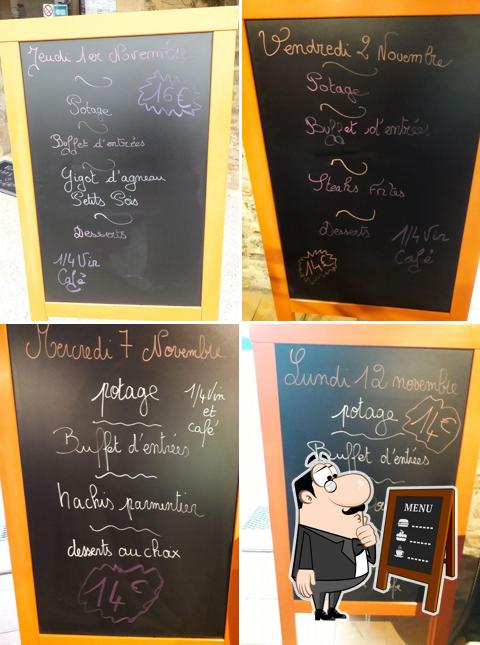 Jeudi 1er Novembre
16€
Potage
Buffet d'entrées
Gigot d'agneau
Petits Pois
Desserts
1/4 Vin
Café
Vendredi 2 Novembre
Potage
Buffet d'entrées
Steaks Frites
Desserts
1/4 Vin
Café
14€
Mercredi 7 Novembre
potage
1/4 Vin
et
café
Buffet d'entrées
hachis parmentier
desserts au choix
14€
Lundi 12 novembre
potage
14€
Buffet d'entées
MENU